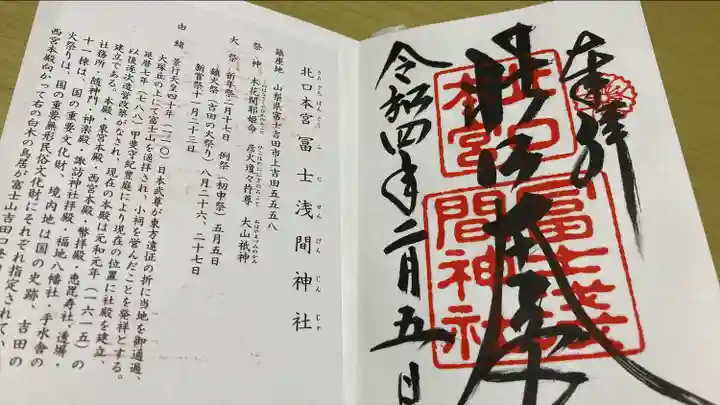 奉拝
北口本宮
令和四年二月五日
北口本宮
冨士浅間神社
きたぐちほんぐう ふじせんげんじんじゃ
北口本宮 冨士浅間神社
鎮座地 山梨県富士吉田市上吉田五五五八
祭神 木花開耶姫命 彦火瓊々杵尊 大山祇神
大祭 新年祭二月十七日 例祭（初申祭）五月五日
鎮火祭（吉田の火祭り）八月二十六、二十七日
新嘗祭十一月二十三日
由緒 景行天皇四十年（一一〇）日本武尊が東方遠征の折に当地を御通過、
大塚丘の上にて富士山を遥拝され、小祠を営んだことを発祥とする。
延暦七年（七八八）甲斐守紀豊庭により現在の位置に社殿を建立、
以後逐次造営改築がなされ、現在の本殿は元和元年（一六一五）の
建立である。本殿・東宮本殿・西宮本殿、幣拝殿・恵毘寿社・透塀・
社務所・随神門・神楽殿・諏訪神社拝殿・福地八幡社・手水舎の
十一棟は、国の重要文化財、境内地は国の史跡、吉田の
火祭りは、国の重要無形民俗文化財にそれぞれ指定されて
西宮本殿向かって右の白木の鳥居が富士山吉田口登